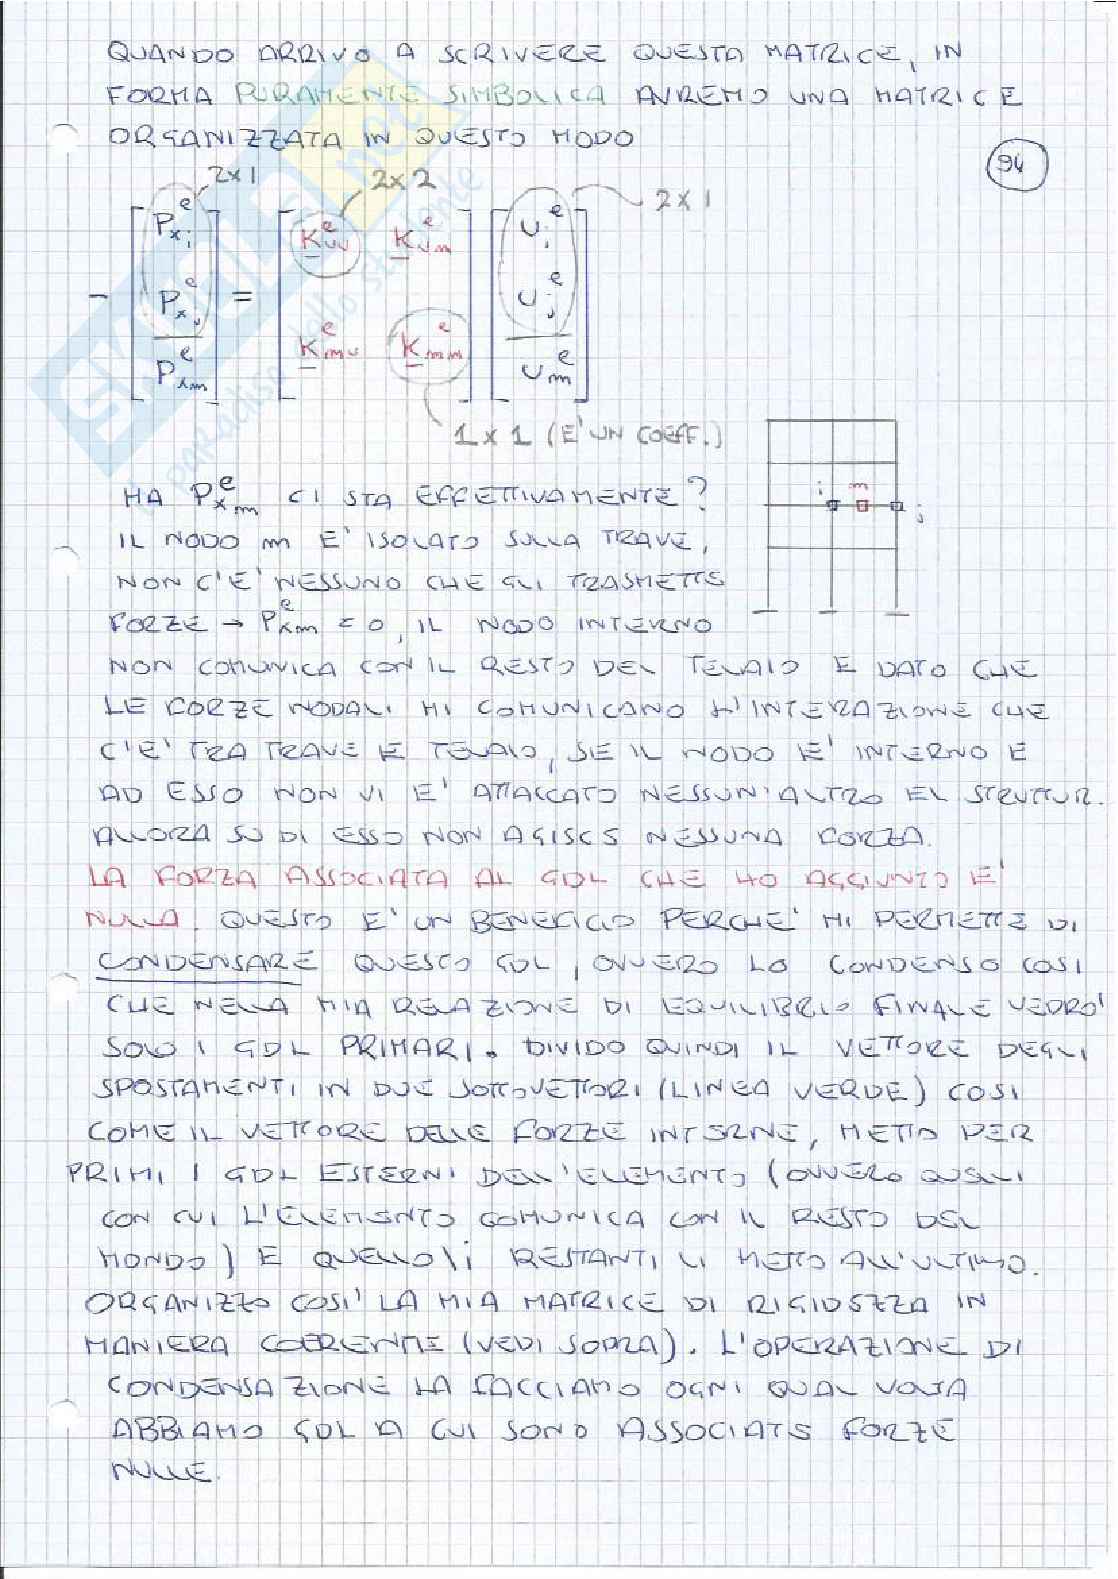 QUANDO ARRIVO A SCRIVERE QUESTA MATRICE, IN
FORMA PURAMENTE SIMBOLICA AVREMO UNA MATRICE
ORGANIZZATA IN QUESTO MODO
94
2x1 2x2 2x1
- [P_xi^e P_xj^e P_xm^e] = [K_uu^e K_um^e K_mu^e K_mm^e] [U_i^e U_j^e U_m^e]
1x1 (E' UN COEFF.)
HA P_xm^e CI STA EFFETTIVAMENTE?
i m j
IL NODO m E' ISOLATO SULLA TRAVE,
NON C'E' NESSUNO CHE GLI TRASMETTE
FORZE → P_xm^e = 0, IL NODO INTERNO
NON COMUNICA CON IL RESTO DEL TELAIO E DATO CHE
LE FORZE NODALI MI COMUNICANO L'INTERAZIONE CHE
C'E' TRA TRAVE E TELAIO, SE IL NODO E' INTERNO E
AD ESSO NON VI E' ATTACCATO NESSUN'ALTRO EL STRUTTUR.
ALLORA SU DI ESSO NON AGISCE NESSUNA FORZA.
LA FORZA ASSOCIATA AL GDL CHE HO AGGIUNTO E'
NULLA. QUESTO E' UN BENEFICIO PERCHE' MI PERMETTE DI
CONDENSARE QUESTO GDL, OVVERO LO CONDENSO COSI
CHE NELLA MIA RELAZIONE DI EQUILIBRIO FINALE VEDRO'
SOLO I GDL PRIMARI. DIVIDO QUINDI IL VETTORE DEGLI
SPOSTAMENTI IN DUE SOTTOVETTORI (LINEA VERDE) COSI
COME IL VETTORE DELLE FORZE INTERNE, METTO PER
PRIMI I GDL ESTERNI DELL'ELEMENTO (OVVERO QUELLI
CON CUI L'ELEMENTO COMUNICA CON IL RESTO DEL
MONDO) E QUELLO\I RESTANTI LI METTO ALL'ULTIMO.
ORGANIZZO COSI' LA MIA MATRICE DI RIGIDEZZA IN
MANIERA COERENTE (VEDI SOPRA). L'OPERAZIONE DI
CONDENSAZIONE LA FACCIAMO OGNI QUAL VOLTA
ABBIAMO GDL A CUI SONO ASSOCIATE FORZE
NULLE.